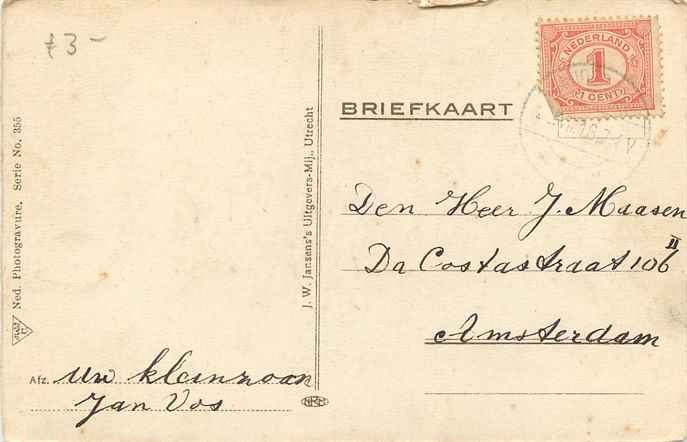 f 3 -
NEDERLAND
1
1 CENT
BRIEFKAART
Ned. Photogravure, Serie No. 355
J. W. Jansens's Uitgevers-Mij., Utrecht
Den Heer J. Maasen
Da Costastraat 106 II
Amsterdam
Afz. Uw kleinzoon
Jan Vos